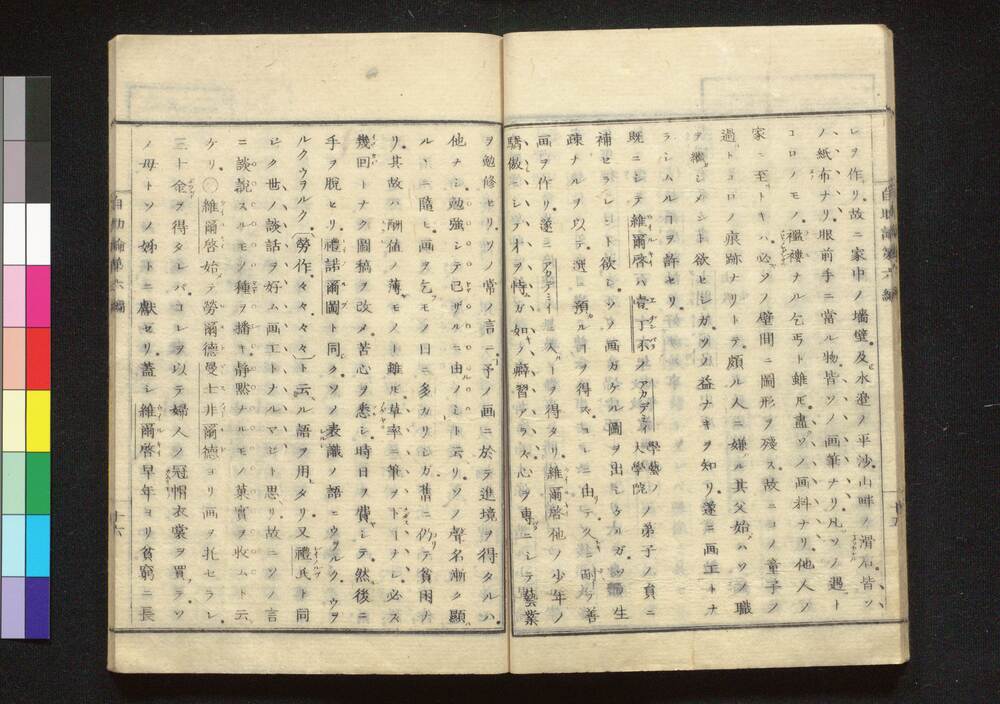 レヲ作リ。故ニ家中ノ墻壁。及ビ水澄ノ平沙。山畔ノ滑石。皆ソ
ノ紙布ナリ。眼前手ニ當ル物。皆ソノ画筆ナリ。凡ソノ遇ト
コロノモノ。襤褸ナル乞丐ト雖𪜈。盡ソノ画料ナリ。他人ノ
家ニ至トキハ。必ソノ壁間ニ圖形ヲ殘ス。故ニコノ童子ノ
過トコロノ痕跡ナリトテ。頗ル人ニ嫌ル。其父始ハソノ職
ヲ繼シメント欲セシガ。ソノ益ナキヲ知リ。遂ニ画工トナ
ラシムルヿヲ許セリ。
既ニシテ維爾啓ハ。韋丁不ンアカデミイ 學藝ノ大學院 ノ弟子ノ員ニ
補セラレント欲シ。ソノ画ガケル圖ヲ出シケルガ。ソノ生
疎ナルヲ以テ。選ニ預ルヿヲ得ズ。コレニ由テ久ク耐テ善
画ヲ作リ。遂ニアカデミイニ入ヿヲ得タリ。維爾啓他ノ少年ノ
驕傲ニシテ才ヲ恃ガ如ノ癖習アラズ。心ヲ專ニシテ藝業
ヲ勉修セリ。ソノ常ノ言ニ。予ノ画ニ於テ進境ヲ得タルハ。
他ナシ。勉強シテ已ザルニ由ノミト云リ。ソノ聲名漸ク顯
ルヽニ隨ヒ。画ヲ乞モノ日ニ多カリシガ。舊ニ仍テ貧困ナ
リ。其故ハ酬値ノ薄モノト雖𪜈。草率ニ筆ヲ下ヿナシ。必ズ
幾回トナク圖稿ヲ改メ。苦心ヲ悉シ。時日ヲ費シテ。然後ニ
手ヲ脱セリ。禮諾爾圖ト同ク。ソノ表識ノ語ニ。ウヲルク。ウヲ
ルクウヲルク。〔勞作。々々。々々。〕ト云ル語ヲ用タリ。又禮氏ト同
ジク。世ノ談話ヲ好ム画工トナルマジト思リ。故ニソノ言
ニ談説スルモノ種ヲ播キ。靜黙ナルモノ菓實ヲ收ムト云
ケリ。○維爾啓始メテ勞爾德曼士井爾德ヨリ画ヲ托セラレ。
三十金ヲ得タレバ。コレヲ以テ婦人ノ冠帽衣裳ヲ買テ。ソ
ノ母トソノ姊トニ獻セリ。蓋シ維爾啓早年ヨリ貧窮ニ長
自助論第六編
十五
自助論第六編
十六